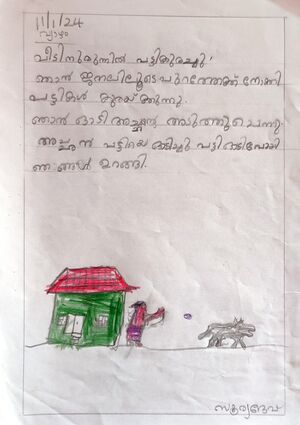 11/1/24
വ്യാഴം
വീടിനുമുന്നിൽ പട്ടികുരച്ചു.
ഞാൻ ജനലിലൂടെ പുറത്തേക്ക് നോക്കി
പട്ടികൾ കുരയ്ക്കുന്നു.
ഞാൻ ഓടി അച്ഛൻ്റെ അടുത്തു ചെന്നു.
അച്ഛൻ പട്ടിയെ ഓടിച്ചു പട്ടി ഓടിപോയി
ഞങ്ങൾ ഉറങ്ങി.
സൂര്യദേവ്